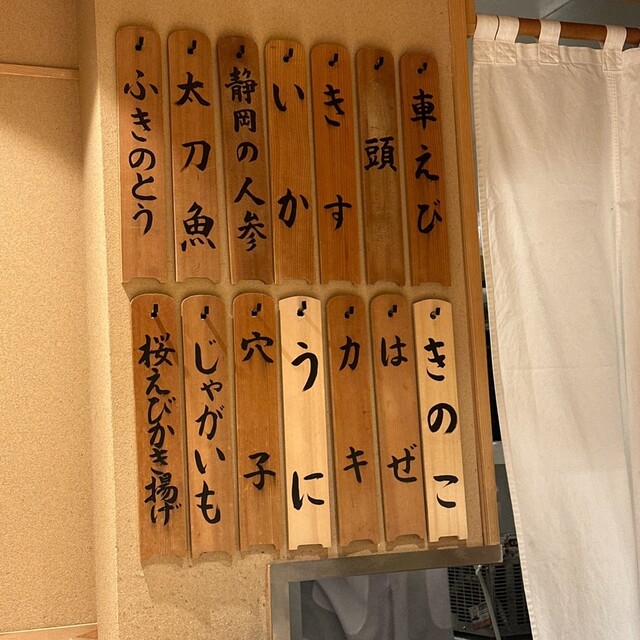 車えび
頭
きす
いか
静岡の人参
太刀魚
ふきのとう
きのこ
はぜ
カキ
うに
穴子
じゃがいも
桜えびかき揚げ